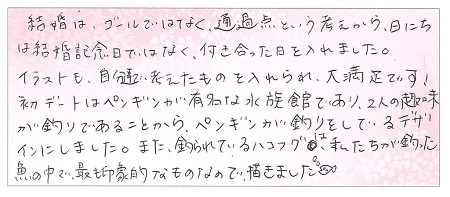 結婚は、ゴールではなく、通過点という考えから、日にち
は結婚記念日ではなく、付き合った日を入れました。
イラストも、自分達で考えたものを入れられ、大満足です!
初デートはペンギンが有名な水族館であり、2人の趣味
が釣りであることから、ペンギンが釣りをしているデザ
インにしました。また、釣られているハコフグは、私たちが釣った
魚の中で、最も印象的なものなので、描きました。